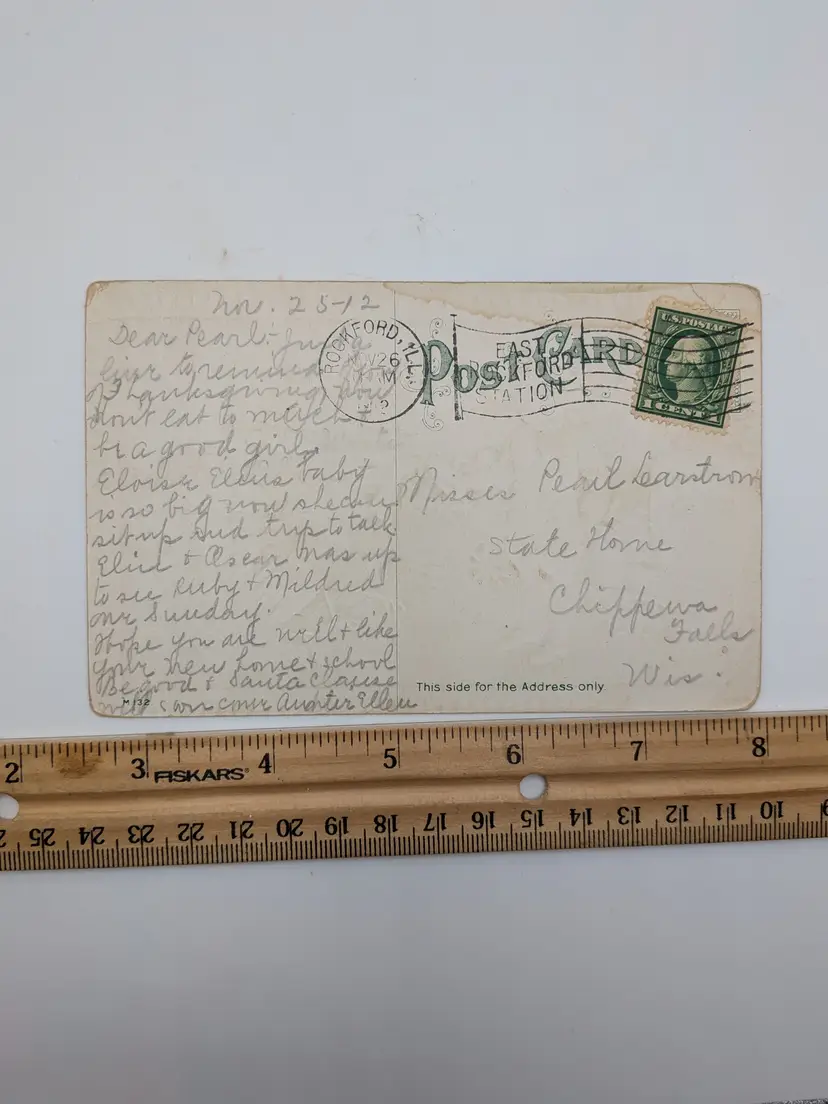 Nov. 25-12
Dear Pearl- Just a
liner to remind you
of Thanksgiving you
dont eat to much +
be a good girl.
Eloise Elsies baby
is so big now she can
sit up and try to talk
Elsie + Oscar was up
to see Ruby + Mildred
one Sunday.
Hope you are well + like
your new home + school
Be good + Santa Clause
will soon come Aunter Ellen
M 132
ROCKFORD, ILL.
NOV 26
M
EAST
ROCKFORD
STATION
POST CARD
U.S. POSTAGE
1 CENT 1
Misses Pearl Learstrom
State Home
Chippewa
Falls
Wis.
This side for the Address only
2 3 FISKARS 4 5 6 7 8
25 24 23 22 21 20 19 18 17 16 15 14 13 12 11 10 9